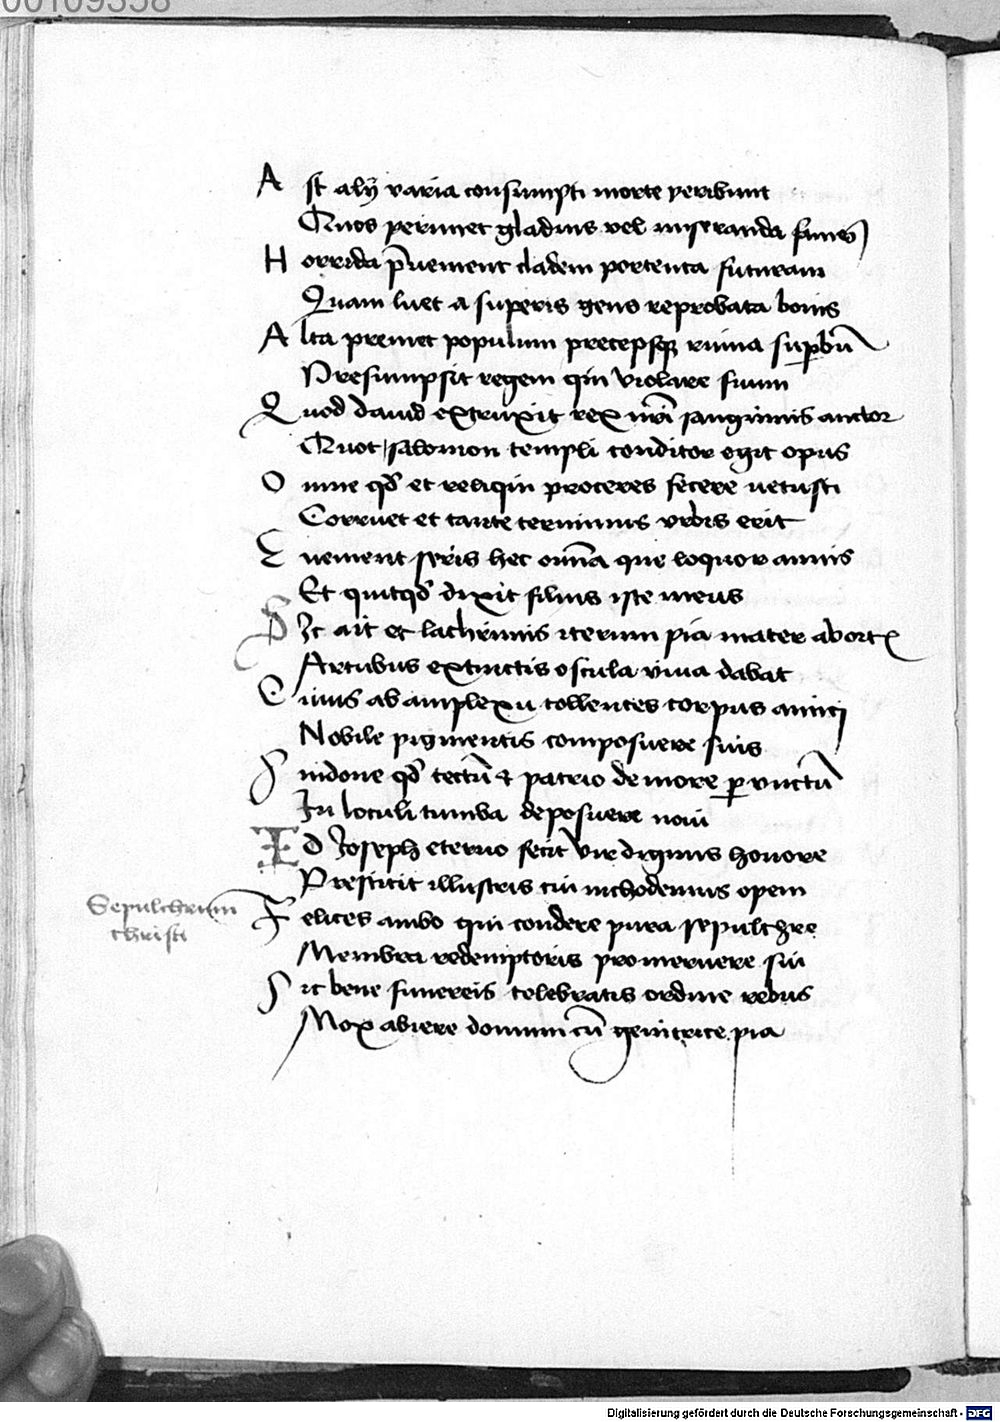 00109358
Ast alij varia consumpti morte peribunt
Quos perimet gladius vel miseranda fames
Horrida p̄uenient cladem portenta futuram
Quam luet a superis gens reprobata bonis
Alta premet populum precepsque ruina sup̱bū
Presumpsit regem qui violare suum
Quod dauid extruxit rex nr̄i sanguinis auctor
Quot salomon templi conditor egit opus
Omne qd̄ et reliqui proceres fecere uetusti
Corruet et tante terminus vrbis erit
Euenient seris hec om̄ia que loquor annis
Et quitqd̄ dixit filius iste meus
Sic ait et lachrimis iterum pia mater abortis
Artubus extinctis oscula viua dabat
Cuius ab amplexu tollentes corpus amici
Nobile pigmentis composuere suis
Sindone qd̄ tectū & patrio de more p̱ vnctū
In loculi tumba deposuere noui
Id Joseph eterno fecit vir dignus honore
Prestitit illustris cui nichodemus opem
Sepulchrum
christi
Felices ambo qui condere pura sepulchre
Membra redemptoris promeruere sui
Sic bene funereis celebratis ordine rebus
Mox abiere domum cū genitrice pia
Digitalisierung gefördert durch die Deutsche Forschungsgemeinschaft - DFG